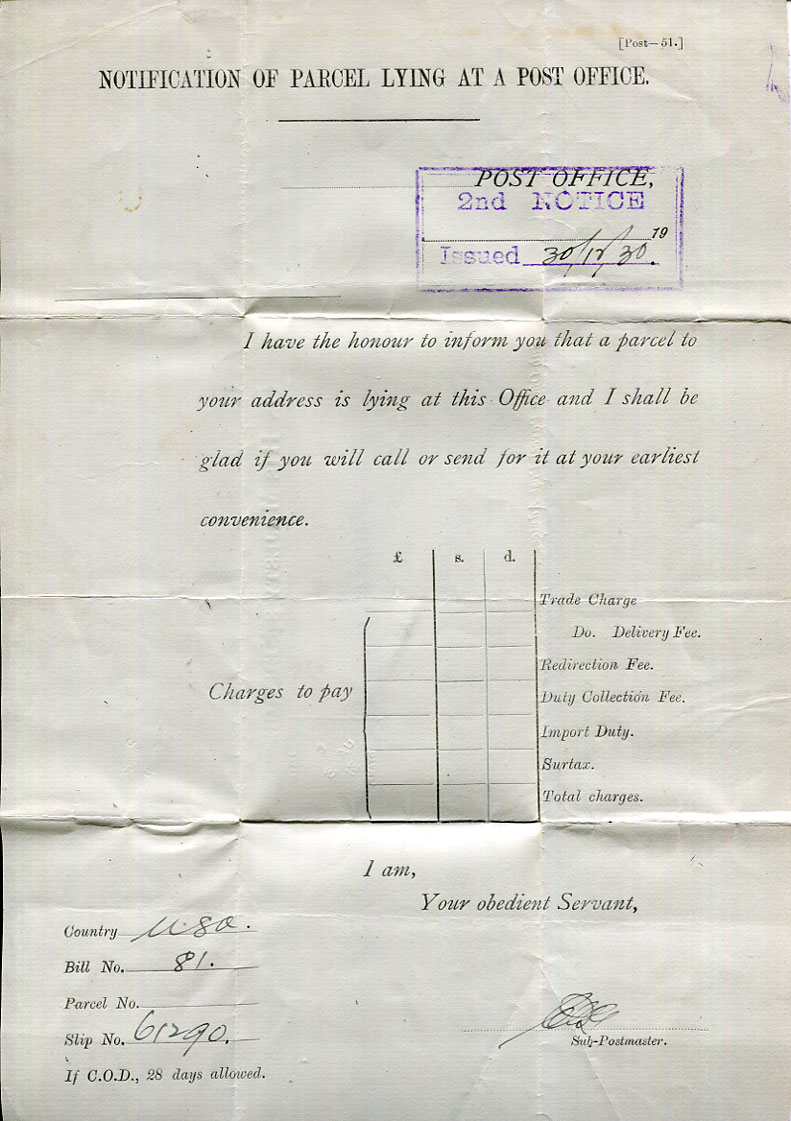 [Post—51.]
NOTIFICATION OF PARCEL LYING AT A POST OFFICE.
POST OFFICE,
2nd NOTICE
19
Issued 30/12/30.
I have the honour to inform you that a parcel to
your address is lying at this Office and I shall be
glad if you will call or send for it at your earliest
convenience.
£ s. d.
Trade Charge
Do. Delivery Fee.
Redirection Fee.
Charges to pay
Duty Collection Fee.
Import Duty.
Surtax.
Total charges.
I am,
Your obedient Servant,
Country USA.
Bill No. 81.
Parcel No.
Slip No. 61290.
Sub-Postmaster.
If C.O.D., 28 days allowed.